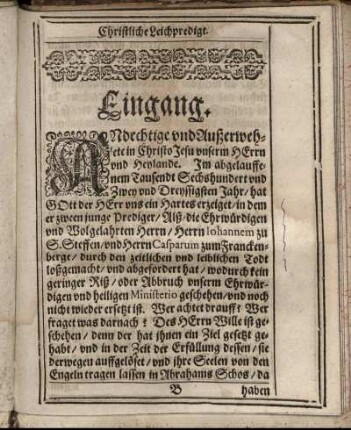 Christliche Leichpredigt.
Eingang.
ANdechtige vnd Außerweh-
lete in Christo Jesu vnserm HErrn
vnd Heylande. Im abgelauffe-
nem Tausendt Sechshundert vnd
Zwey vnd Dreyssigsten Jahr/ hat
GOtt der HErr vns ein Hartes erzeiget/ in dem
er zween junge Prediger/ Alß/ die Ehrwürdigen
vnd Wolgelahrten Herrn/ Herrn Iohannem zu
S. Steffen/ vnd Herrn Casparum zum Francken-
berge/ durch den zeitlichen vnd leiblichen Todt
loßgemacht/ vnd abgefordert hat/ wodurch kein
geringer Riß/ oder Abbruch vnserm Ehrwür-
digen vnd heiligen Ministerio geschehen/ vnd noch
nicht wieder ersetzt ist. Wer achtet drauff? Wer
fraget was darnach? Des HErrn Wille ist ge-
schehen/ denn der hat jhnen ein Ziel gesetzt ge-
habt/ vnd in der Zeit der Erfüllung dessen/ sie
derwegen auffgelöset/ vnd ihre Seelen von den
Engeln tragen lassen in Abrahams Schos/ da
B haben